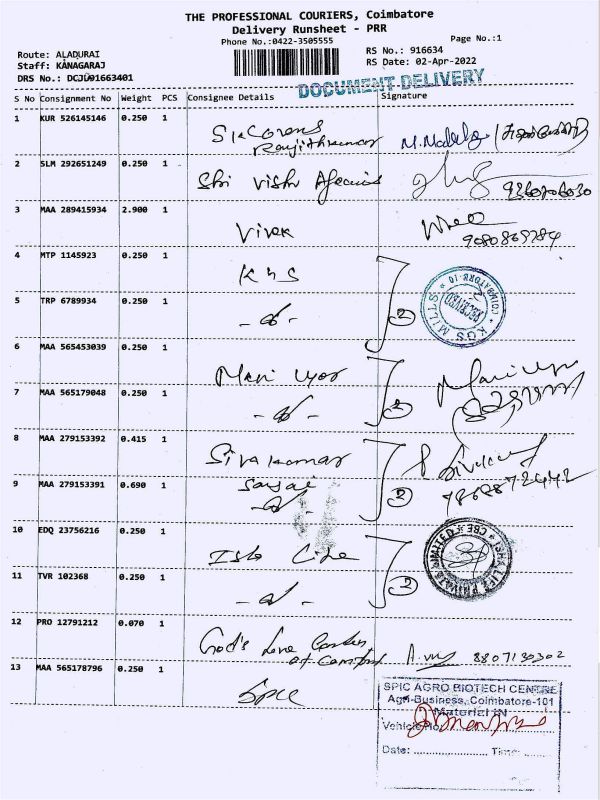 THE PROFESSIONAL COURIERS, Coimbatore
Delivery Runsheet - PRR
Phone No.:0422-3505555
Page No.:1
Route: ALADURAI
Staff: KANAGARAJ
DRS No.: DCJU91663401
RS No.: 916634
RS Date: 02-Apr-2022
DOCUMENT DELIVERY
S No Consignment No Weight PCS Consignee Details Signature
1 KUR 526145146 0.250 1
Ranjithkumar
2 SLM 292651249 0.250 1 Shri Vishu
3 MAA 289415934 2.900 1 Vivek
9080869784
4 MTP 1145923 0.250 1 KGS
5 TRP 6789934 0.250 1 2
KGS MILLS COIMBATORE-10
RECEIVED
6 MAA 565453039 0.250 1 Mani
7 MAA 565179048 0.250 1 2
8 MAA 279153392 0.415 1 Sivakumar
9 MAA 279153391 0.690 1 2
10 EDQ 23756216 0.250 1 Isha Life
ISHA LIFE PRIVATE LIMITED CBE
11 TVR 102368 0.250 1 2
12 PRO 12791212 0.070 1 God's Love Center
of Comfort
8807130302
13 MAA 565178796 0.250 1 SPIC
SPIC AGRO BIOTECH CENTRE
Agri-Business, Coimbatore-101
Material IN
Vehicle No
Date: Time: